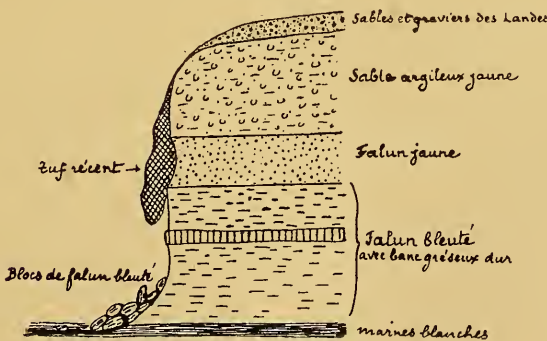 Sables et graviers des Landes
Sable argileux jaune
Falun jaune
Tuf récent
Falun bleuté
avec banc gréseux dur
Blocs de falun bleuté
marnes blanches